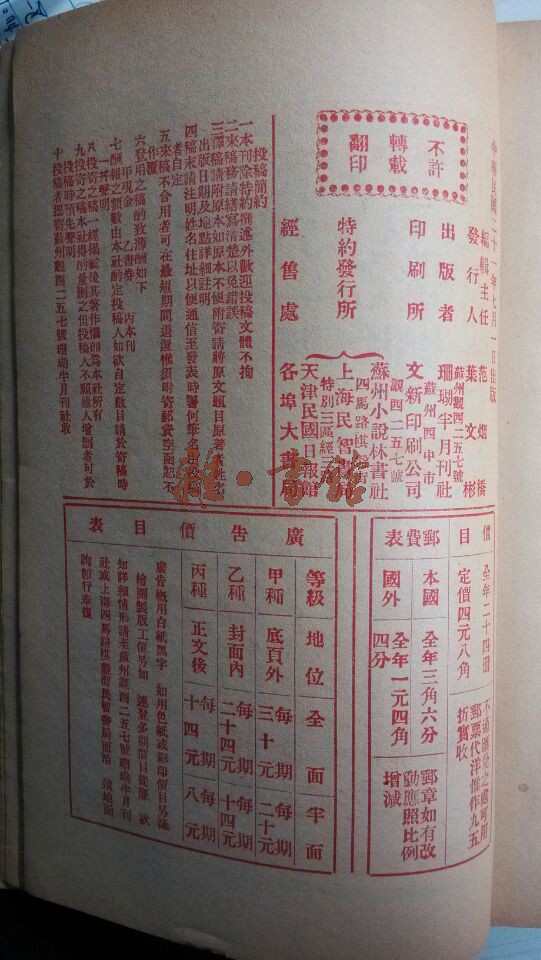 中華民國二十一年七月一日出版
編輯主任 范烟橋
發行人 葉文彬
蘇州觀四二五七號
出版者 珊瑚半月刊社
蘇州西中市
印刷所 文新印刷公司
觀四二五七號
蘇州小說林書社
四馬路
特約發行所 上海民智書局
特別三區經三路
天津民國日報館
經售處 各埠大書局
不許
轉載
翻印
投稿簡約
一本刊除特約撰述外歡迎投稿文體不拘
二來稿務請繕寫清楚以免錯誤
三譯稿請附原本如原本不便附寄請將原文題目原著者姓名
出版日期及地點詳細註明
四稿末請注明姓名住址以便通信至發表時署何筆名由投稿
者自定
五來稿不合用者可在最短期間退還惟須附寄郵資空函恕不
作覆
六登用之稿酌致薄酬如下
甲現金 乙書券 丙本刊
七酬報之額數由本社酌定投稿人如欲自定數目請於寄稿時
一并聲明
八投寄之稿一經揭載後其著作權即為本社所有
九投寄之稿本社得酌量刪之但投稿人不願他人增刪者可於
投稿時預先聲明
十投稿者逕寄蘇州觀四二五七號珊瑚半月刊社收
價目
全年二十四冊
定價四元八角
不通匯兌之處可用
郵票代洋惟作九五
折實收
郵費表
本國 全年三角六分
國外 全年一元四角
四分
郵章如有改
動應照比例
增減
廣告價目表
等級 地位 全面 半面
甲種 底頁外 每期三十元 每期二十元
乙種 封面內 每期二十四元 每期十四元
丙種 正文後 每期十四元 每期八元
廣告概用白紙黑字 如用色紙或彩印價目另議
繪圖製版工價另加 連登多期價目從廉 欲
知詳細情形請至蘇州觀四二五七號珊瑚半月刊
社或上海四馬路棋盤街民智書局面洽
詢即行奉復